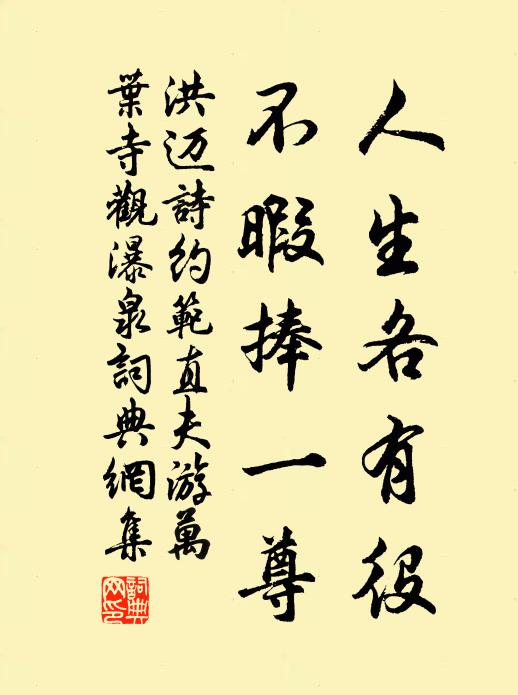 人生各有役
不暇捧一尊
洪迈詩约範直夫游萬
葉寺觀瀑泉詞典網集
詞典網印